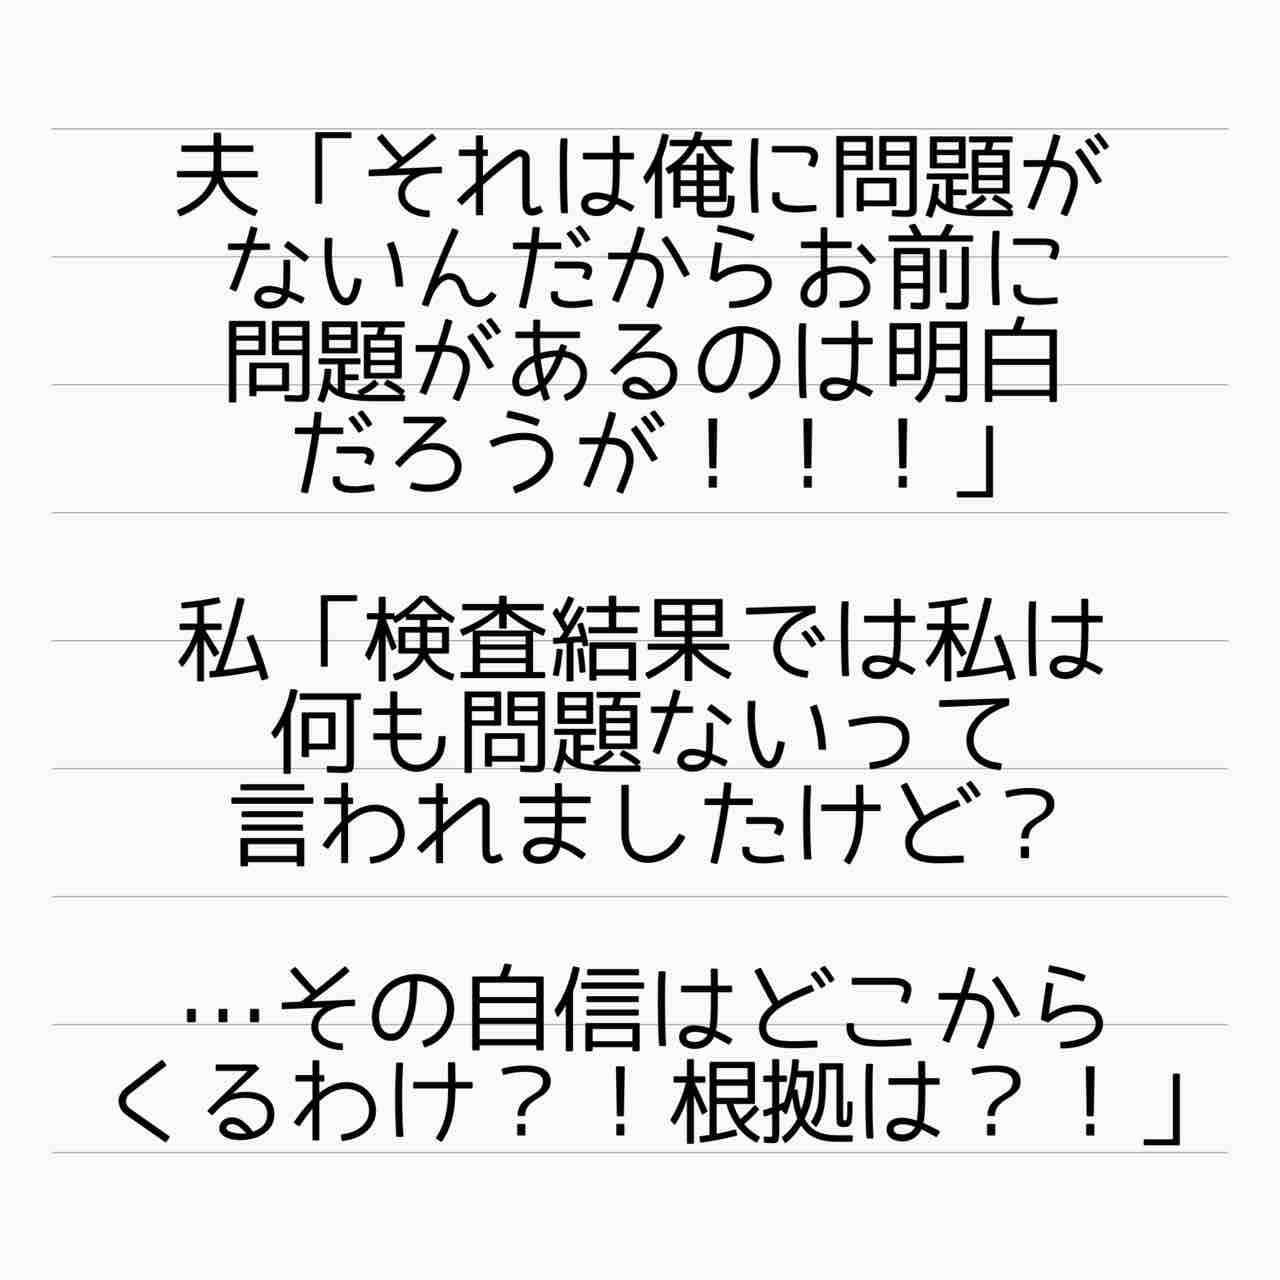 夫「それは俺に問題が
ないんだからお前に
問題があるのは明白
だろうが！！！」
私「検査結果では私は
何も問題ないって
言われましたけど？
…その自信はどこから
くるわけ？！根拠は？！」